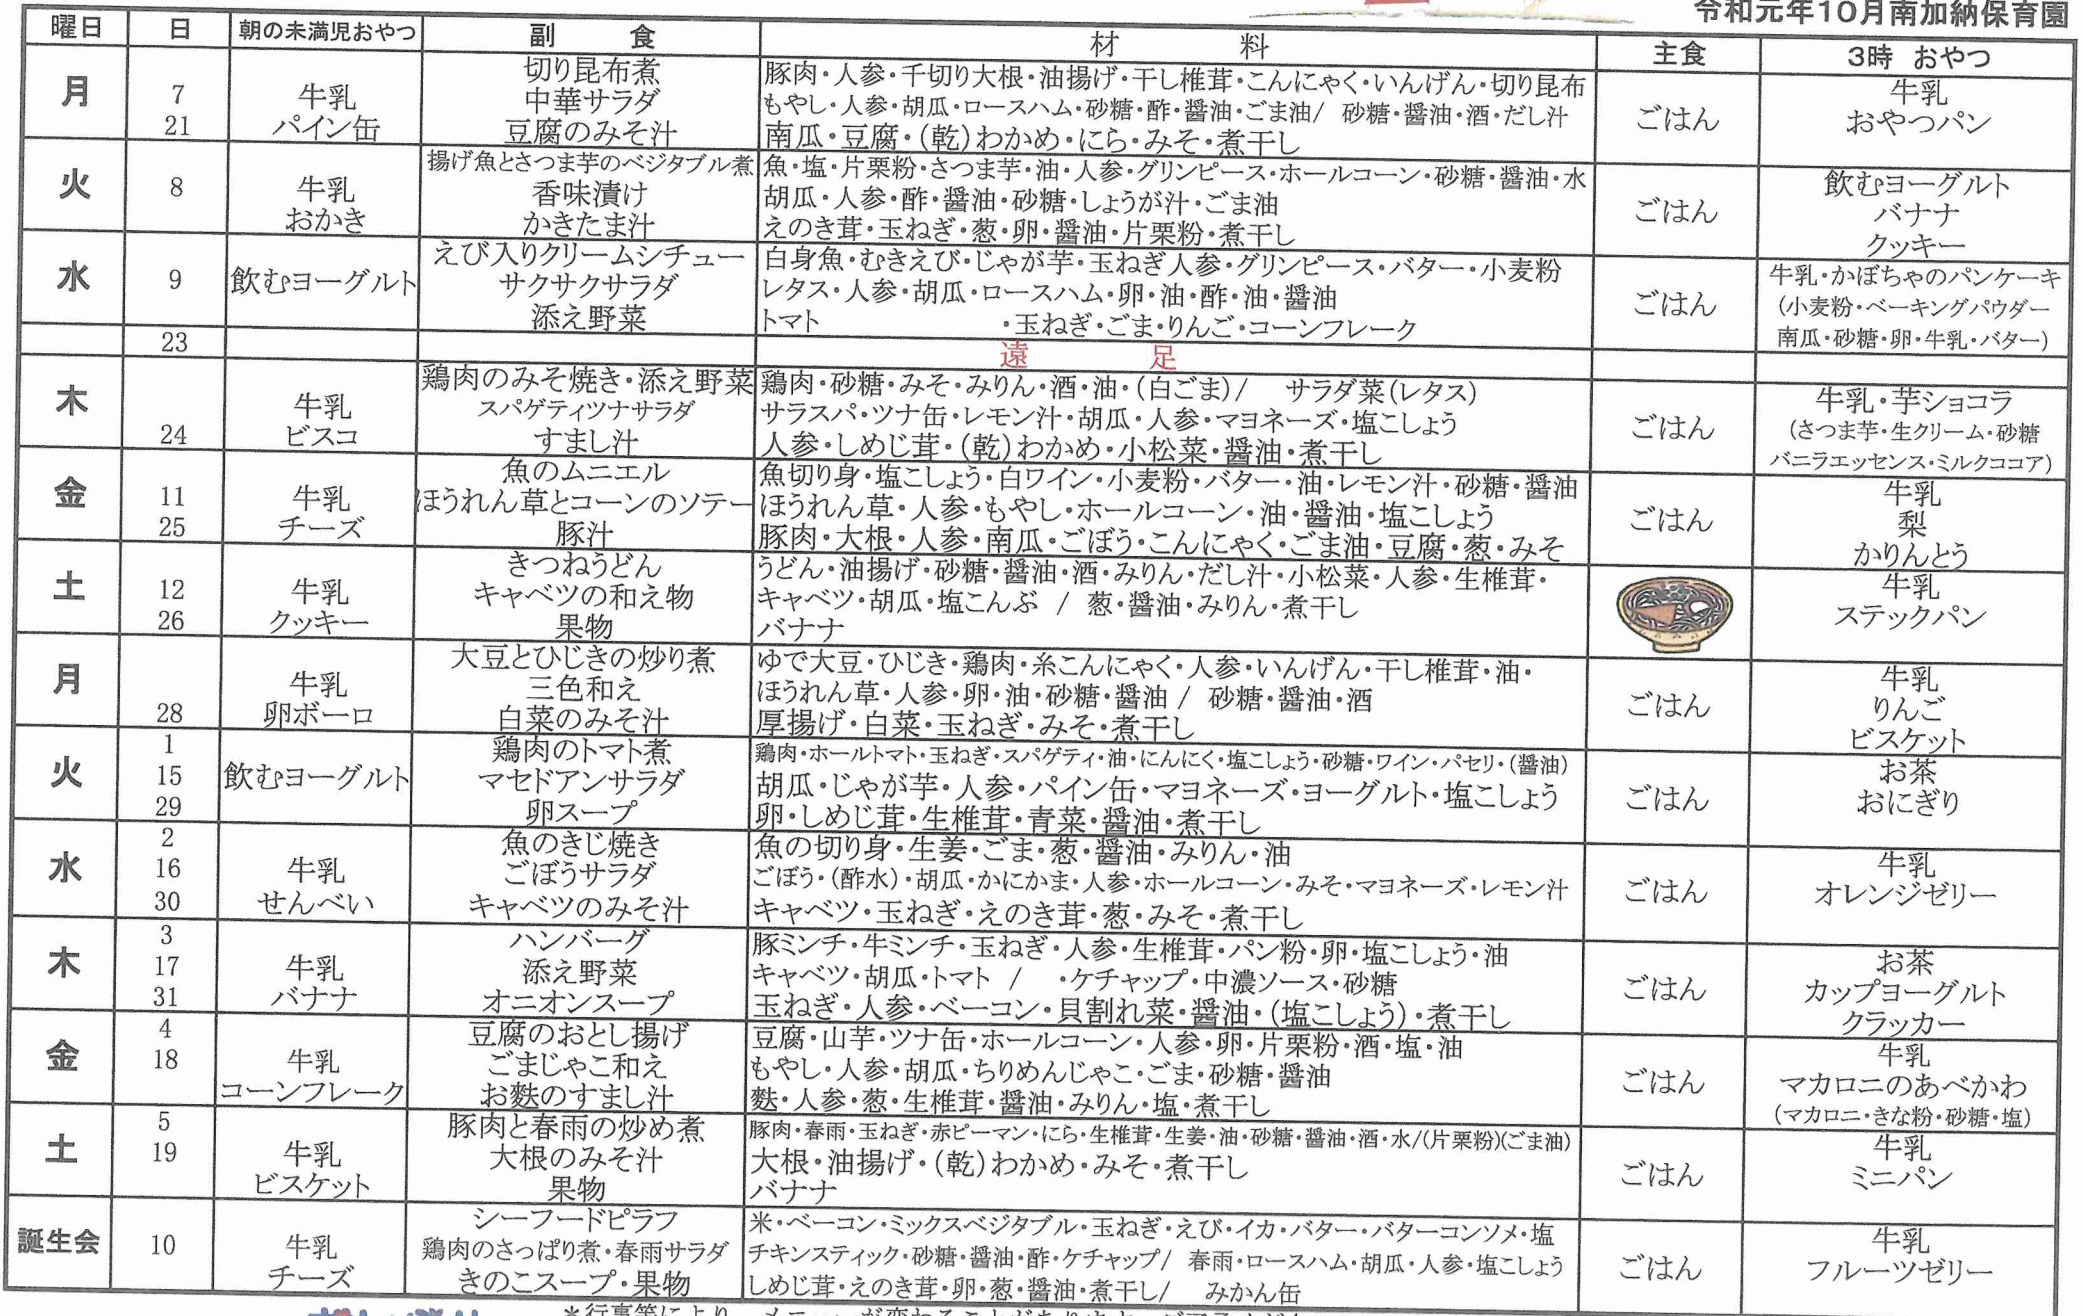 令和元年10月南加納保育園
曜日 日 朝の未満児おやつ 副 食 材 料 主食 3時 おやつ
月
7
21
牛乳
パイン缶
切り昆布煮
中華サラダ
豆腐のみそ汁
豚肉・人参・千切り大根・油揚げ・干し椎茸・こんにゃく・いんげん・切り昆布
もやし・人参・胡瓜・ロースハム・砂糖・酢・醤油・ごま油/ 砂糖・醤油・酒・だし汁
南瓜・豆腐・(乾)わかめ・にら・みそ・煮干し
ごはん
牛乳
おやつパン
火
8
牛乳
おかき
揚げ魚とさつま芋のベジタブル煮
香味漬け
かきたま汁
魚・塩・片栗粉・さつま芋・油・人参・グリンピース・ホールコーン・砂糖・醤油・水
胡瓜・人参・酢・醤油・砂糖・しょうが汁・ごま油
えのき茸・玉ねぎ・葱・卵・醤油・片栗粉・煮干し
ごはん
飲むヨーグルト
バナナ
クッキー
水
9
飲むヨーグルト
えび入りクリームシチュー
サクサクサラダ
添え野菜
白身魚・むきえび・じゃが芋・玉ねぎ人参・グリンピース・バター・小麦粉
レタス・人参・胡瓜・ロースハム・卵・油・酢・油・醤油
トマト ・玉ねぎ・ごま・りんご・コーンフレーク
ごはん
牛乳・かぼちゃのパンケーキ
(小麦粉・ベーキングパウダー
南瓜・砂糖・卵・牛乳・バター)
23
遠 足
木
24
牛乳
ビスコ
鶏肉のみそ焼き・添え野菜
スパゲティツナサラダ
すまし汁
鶏肉・砂糖・みそ・みりん・酒・油・(白ごま)/ サラダ菜(レタス)
サラスパ・ツナ缶・レモン汁・胡瓜・人参・マヨネーズ・塩こしょう
人参・しめじ茸・(乾)わかめ・小松菜・醤油・煮干し
ごはん
牛乳・芋ショコラ
(さつま芋・生クリーム・砂糖
バニラエッセンス・ミルクココア)
金
11
25
牛乳
チーズ
魚のムニエル
ほうれん草とコーンのソテー
豚汁
魚切り身・塩こしょう・白ワイン・小麦粉・バター・油・レモン汁・砂糖・醤油
ほうれん草・人参・もやし・ホールコーン・油・醤油・塩こしょう
豚肉・大根・人参・南瓜・ごぼう・こんにゃく・ごま油・豆腐・葱・みそ
ごはん
牛乳
梨
かりんとう
土
12
26
牛乳
クッキー
きつねうどん
キャベツの和え物
果物
うどん・油揚げ・砂糖・醤油・酒・みりん・だし汁・小松菜・人参・生椎茸・
キャベツ・胡瓜・塩こんぶ / 葱・醤油・みりん・煮干し
バナナ
牛乳
ステックパン
月
28
牛乳
卵ボーロ
大豆とひじきの炒り煮
三色和え
白菜のみそ汁
ゆで大豆・ひじき・鶏肉・糸こんにゃく・人参・いんげん・干し椎茸・油・
ほうれん草・人参・卵・油・砂糖・醤油 / 砂糖・醤油・酒
厚揚げ・白菜・玉ねぎ・みそ・煮干し
ごはん
牛乳
りんご
ビスケット
火
1
15
29
飲むヨーグルト
鶏肉のトマト煮
マセドアンサラダ
卵スープ
鶏肉・ホールトマト・玉ねぎ・スパゲティ・油・にんにく・塩こしょう・砂糖・ワイン・パセリ・(醤油)
胡瓜・じゃが芋・人参・パイン缶・マヨネーズ・ヨーグルト・塩こしょう
卵・しめじ茸・生椎茸・青菜・醤油・煮干し
ごはん
お茶
おにぎり
水
2
16
30
牛乳
せんべい
魚のきじ焼き
ごぼうサラダ
キャベツのみそ汁
魚の切り身・生姜・ごま・葱・醤油・みりん・油
ごぼう・(酢水)・胡瓜・かにかま・人参・ホールコーン・みそ・マヨネーズ・レモン汁
キャベツ・玉ねぎ・えのき茸・葱・みそ・煮干し
ごはん
牛乳
オレンジゼリー
木
3
17
31
牛乳
バナナ
ハンバーグ
添え野菜
オニオンスープ
豚ミンチ・牛ミンチ・玉ねぎ・人参・生椎茸・パン粉・卵・塩こしょう・油
キャベツ・胡瓜・トマト / ・ケチャップ・中濃ソース・砂糖
玉ねぎ・人参・ベーコン・貝割れ菜・醤油・(塩こしょう)・煮干し
ごはん
お茶
カップヨーグルト
クラッカー
金
4
18
牛乳
コーンフレーク
豆腐のおとし揚げ
ごまじゃこ和え
お麩のすまし汁
豆腐・山芋・ツナ缶・ホールコーン・人参・卵・片栗粉・酒・塩・油
もやし・人参・胡瓜・ちりめんじゃこ・ごま・砂糖・醤油
麩・人参・葱・生椎茸・醤油・みりん・塩・煮干し
ごはん
牛乳
マカロニのあべかわ
(マカロニ・きな粉・砂糖・塩)
土
5
19
牛乳
ビスケット
豚肉と春雨の炒め煮
大根のみそ汁
果物
豚肉・春雨・玉ねぎ・赤ピーマン・にら・生椎茸・生姜・油・砂糖・醤油・酒・水/(片栗粉)(ごま油)
大根・油揚げ・(乾)わかめ・みそ・煮干し
バナナ
ごはん
牛乳
ミニパン
誕生会
10
牛乳
チーズ
シーフードピラフ
鶏肉のさっぱり煮・春雨サラダ
きのこスープ・果物
米・ベーコン・ミックスベジタブル・玉ねぎ・えび・イカ・バター・バターコンソメ・塩
チキンスティック・砂糖・醤油・酢・ケチャップ/ 春雨・ロースハム・胡瓜・人参・塩こしょう
しめじ茸・えのき茸・卵・葱・醤油・煮干し/ みかん缶
ごはん
牛乳
フルーツゼリー